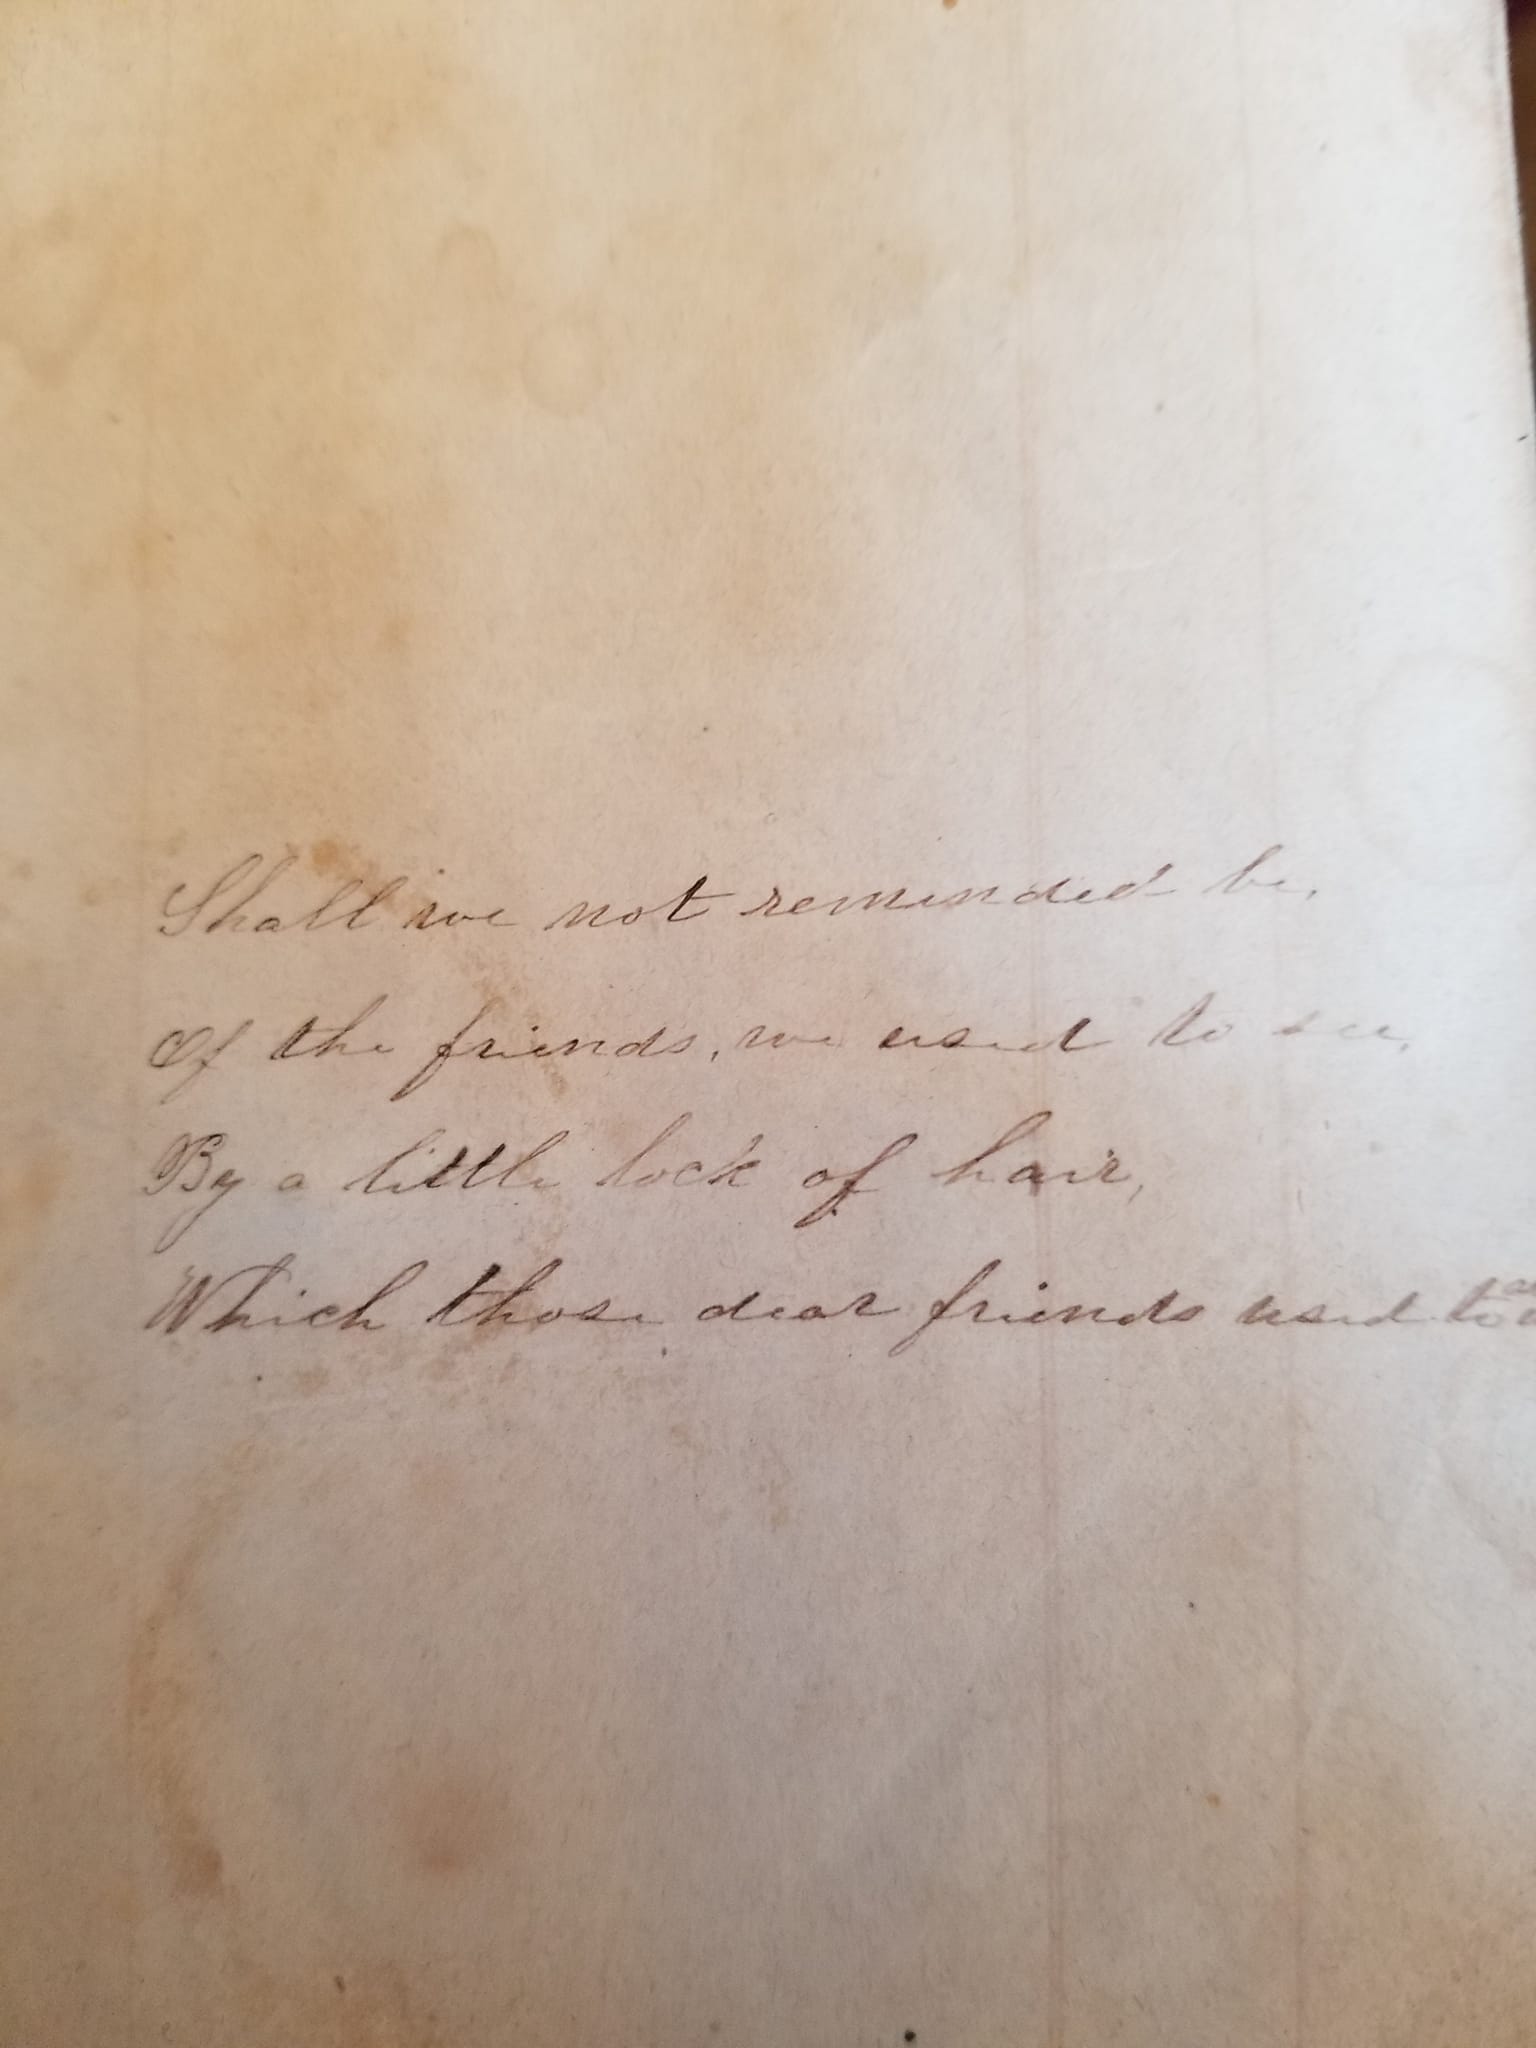 Shall we not reminded be,
Of the friends, we used to see,
By a little lock of hair,
Which those dear friends used to